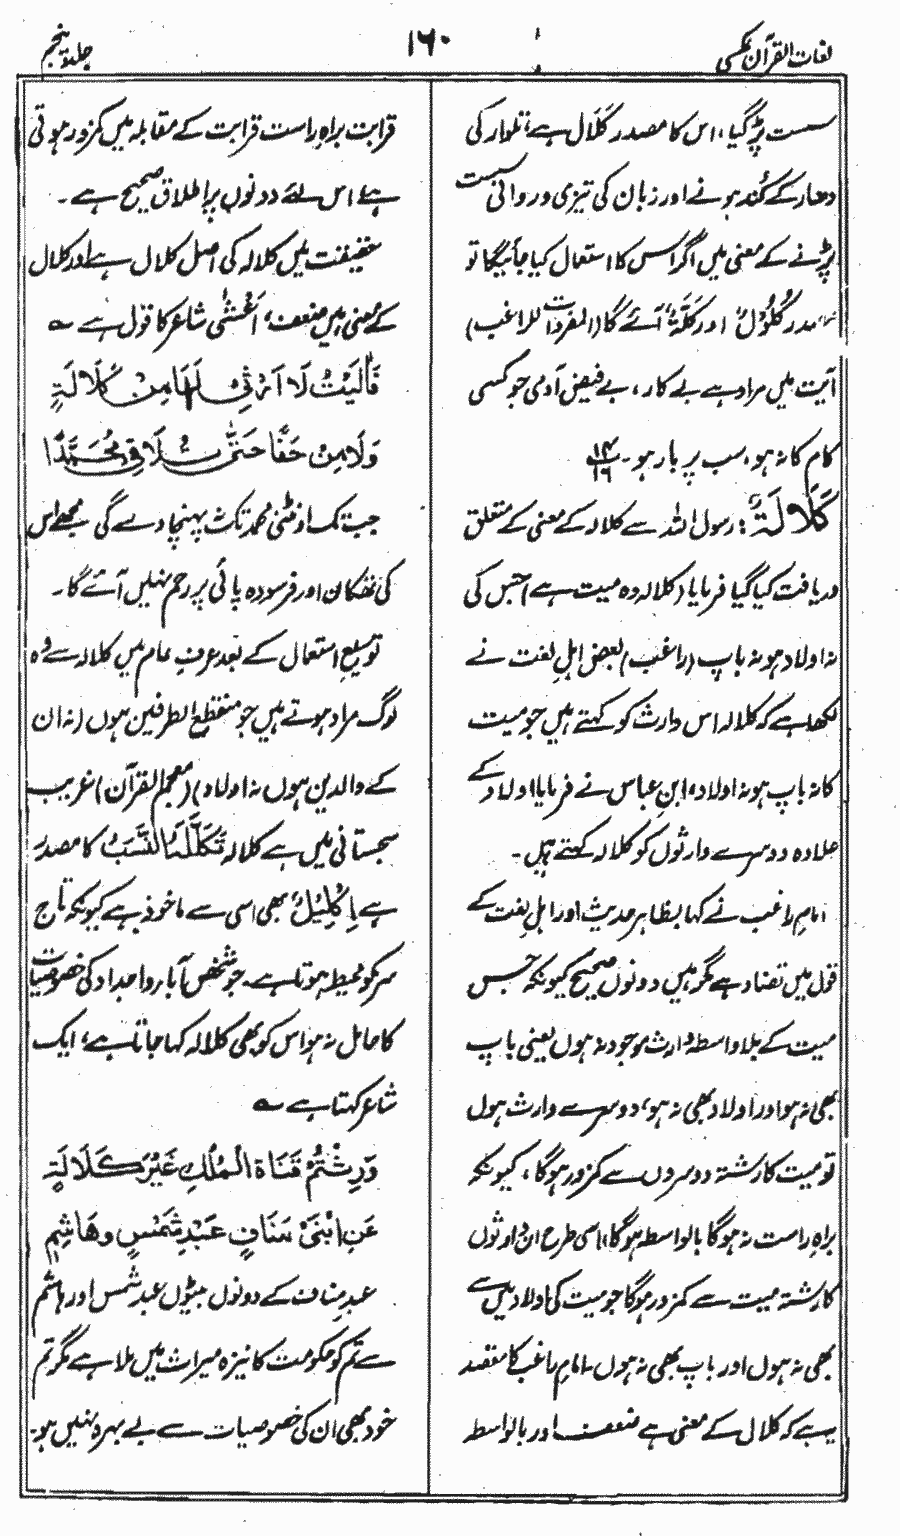 لغات القرآن عکسی
۱۶۰
جلد پنجم
سست پڑ گیا، اس کا مصدر کَلَال ہے، تلوار کی
دھار کے کُند ہونے اور زبان کی تیزی و روانی سست
پڑنے کے معنی میں اگر اس کا استعمال کیا جائیگا تو
مصدر کُلُوْلٌ اور کَلَّةٌ آئے گا (المفردات للراغب)
آیت میں مراد ہے بے کار، بے فیض آدمی جو کسی
کام کا نہ ہو، سب پر بار ہو۔ ۱۴/۱۶
کَلَالَةً: رسول اللہ سے کلالہ کے معنی کے متعلق
دریافت کیا گیا فرمایا (کلالہ وہ میت ہے) جس کی
نہ اولاد ہو نہ باپ (راغب) بعض اہلِ لغت نے
لکھا ہے کہ کلالہ اس وارث کو کہتے ہیں جو میت
کا نہ باپ ہو نہ اولاد، ابنِ عباس نے فرمایا اولاد کے
علاوہ دوسرے وارثوں کو کلالہ کہتے ہیں۔
امام راغب نے کہا بظاہر حدیث اور اہلِ لغت کے
قول میں تضاد ہے مگر ہیں دونوں صحیح کیونکہ جس
میت کے بلا واسطہ وارث موجود نہ ہوں یعنی باپ
بھی نہ ہو اور اولاد بھی نہ ہو، دوسرے وارث ہوں
تو میت کا رشتہ دوسروں سے کمزور ہوگا، کیونکہ
براہِ راست نہ ہوگا بالواسطہ ہوگا، اسی طرح ان وارثوں
کا رشتہ میت سے کمزور ہوگا جو میت کی اولاد میں سے
بھی نہ ہوں اور باپ بھی نہ ہوں۔ امام راغب کا مقصد
یہ ہے کہ کلال کے معنی ہے ضعف اور بالواسطہ
قرابت براہِ راست قرابت کے مقابلہ میں کمزور ہوتی
ہے اس لئے دونوں پر اطلاق صحیح ہے۔
حقیقت میں کلالہ کی اصل کلال ہے اور کلال
کے معنی ہیں ضعف، اَعْشٰی شاعر کا قول ہے ؎
فَاٰلَیْتُ لَا اَرْثِیْ لَهَا مِنْ کَلَالَةٍ
وَلَا مِنْ حَفًا حَتّٰی تُلَاقِیْ مُحَمَّدًا
جب تک اونٹنی محمد تک نہ پہنچا دے گی مجھے اس
کی تھکان اور فرسودہ پائی پر رحم نہیں آئے گا۔
توسیعِ استعمال کے بعد عرفِ عام میں کلالہ سے وہ
لوگ مراد ہوتے ہیں جو منقطع الطرفین ہوں (نہ ان
کے والدین ہوں نہ اولاد) (معجم القرآن) غریب
سجستانی میں ہے کلالہ تَکَلَّلَهُ النَّسَبُ کا مصدر
ہے اِکْلِیْلٌ بھی اسی سے ماخوذ ہے کیونکہ تاج
سر کو محیط ہوتا ہے۔ جو شخص آباء و اجداد کی خصوصیات
کا حامل نہ ہو اس کو بھی کلالہ کہا جاتا ہے، ایک
شاعر کہتا ہے ؎
وَرِثْتُمْ قَنَاةَ الْمُلْكِ غَیْرَ کَلَالَةٍ
عَنِ ابْنَیْ مَنَافٍ عَبْدِ شَمْسٍ وهَاشِمٍ
عبدِ مناف کے دونوں بیٹوں عبد شمس اور ہاشم
سے تم کو حکومت کا نیزہ میراث میں ملا ہے مگر تم
خود بھی ان کی خصوصیات سے بے بہرہ نہیں ہو۔